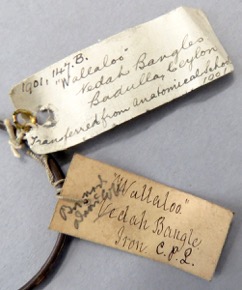 1901.147.B.
"Wallaloo"
Vedah Bangles.
Badulla, Ceylon
Transferred from Anatomical
1901
"Wallaloo."
Vedah Bangle.
Iron. C.P.2.